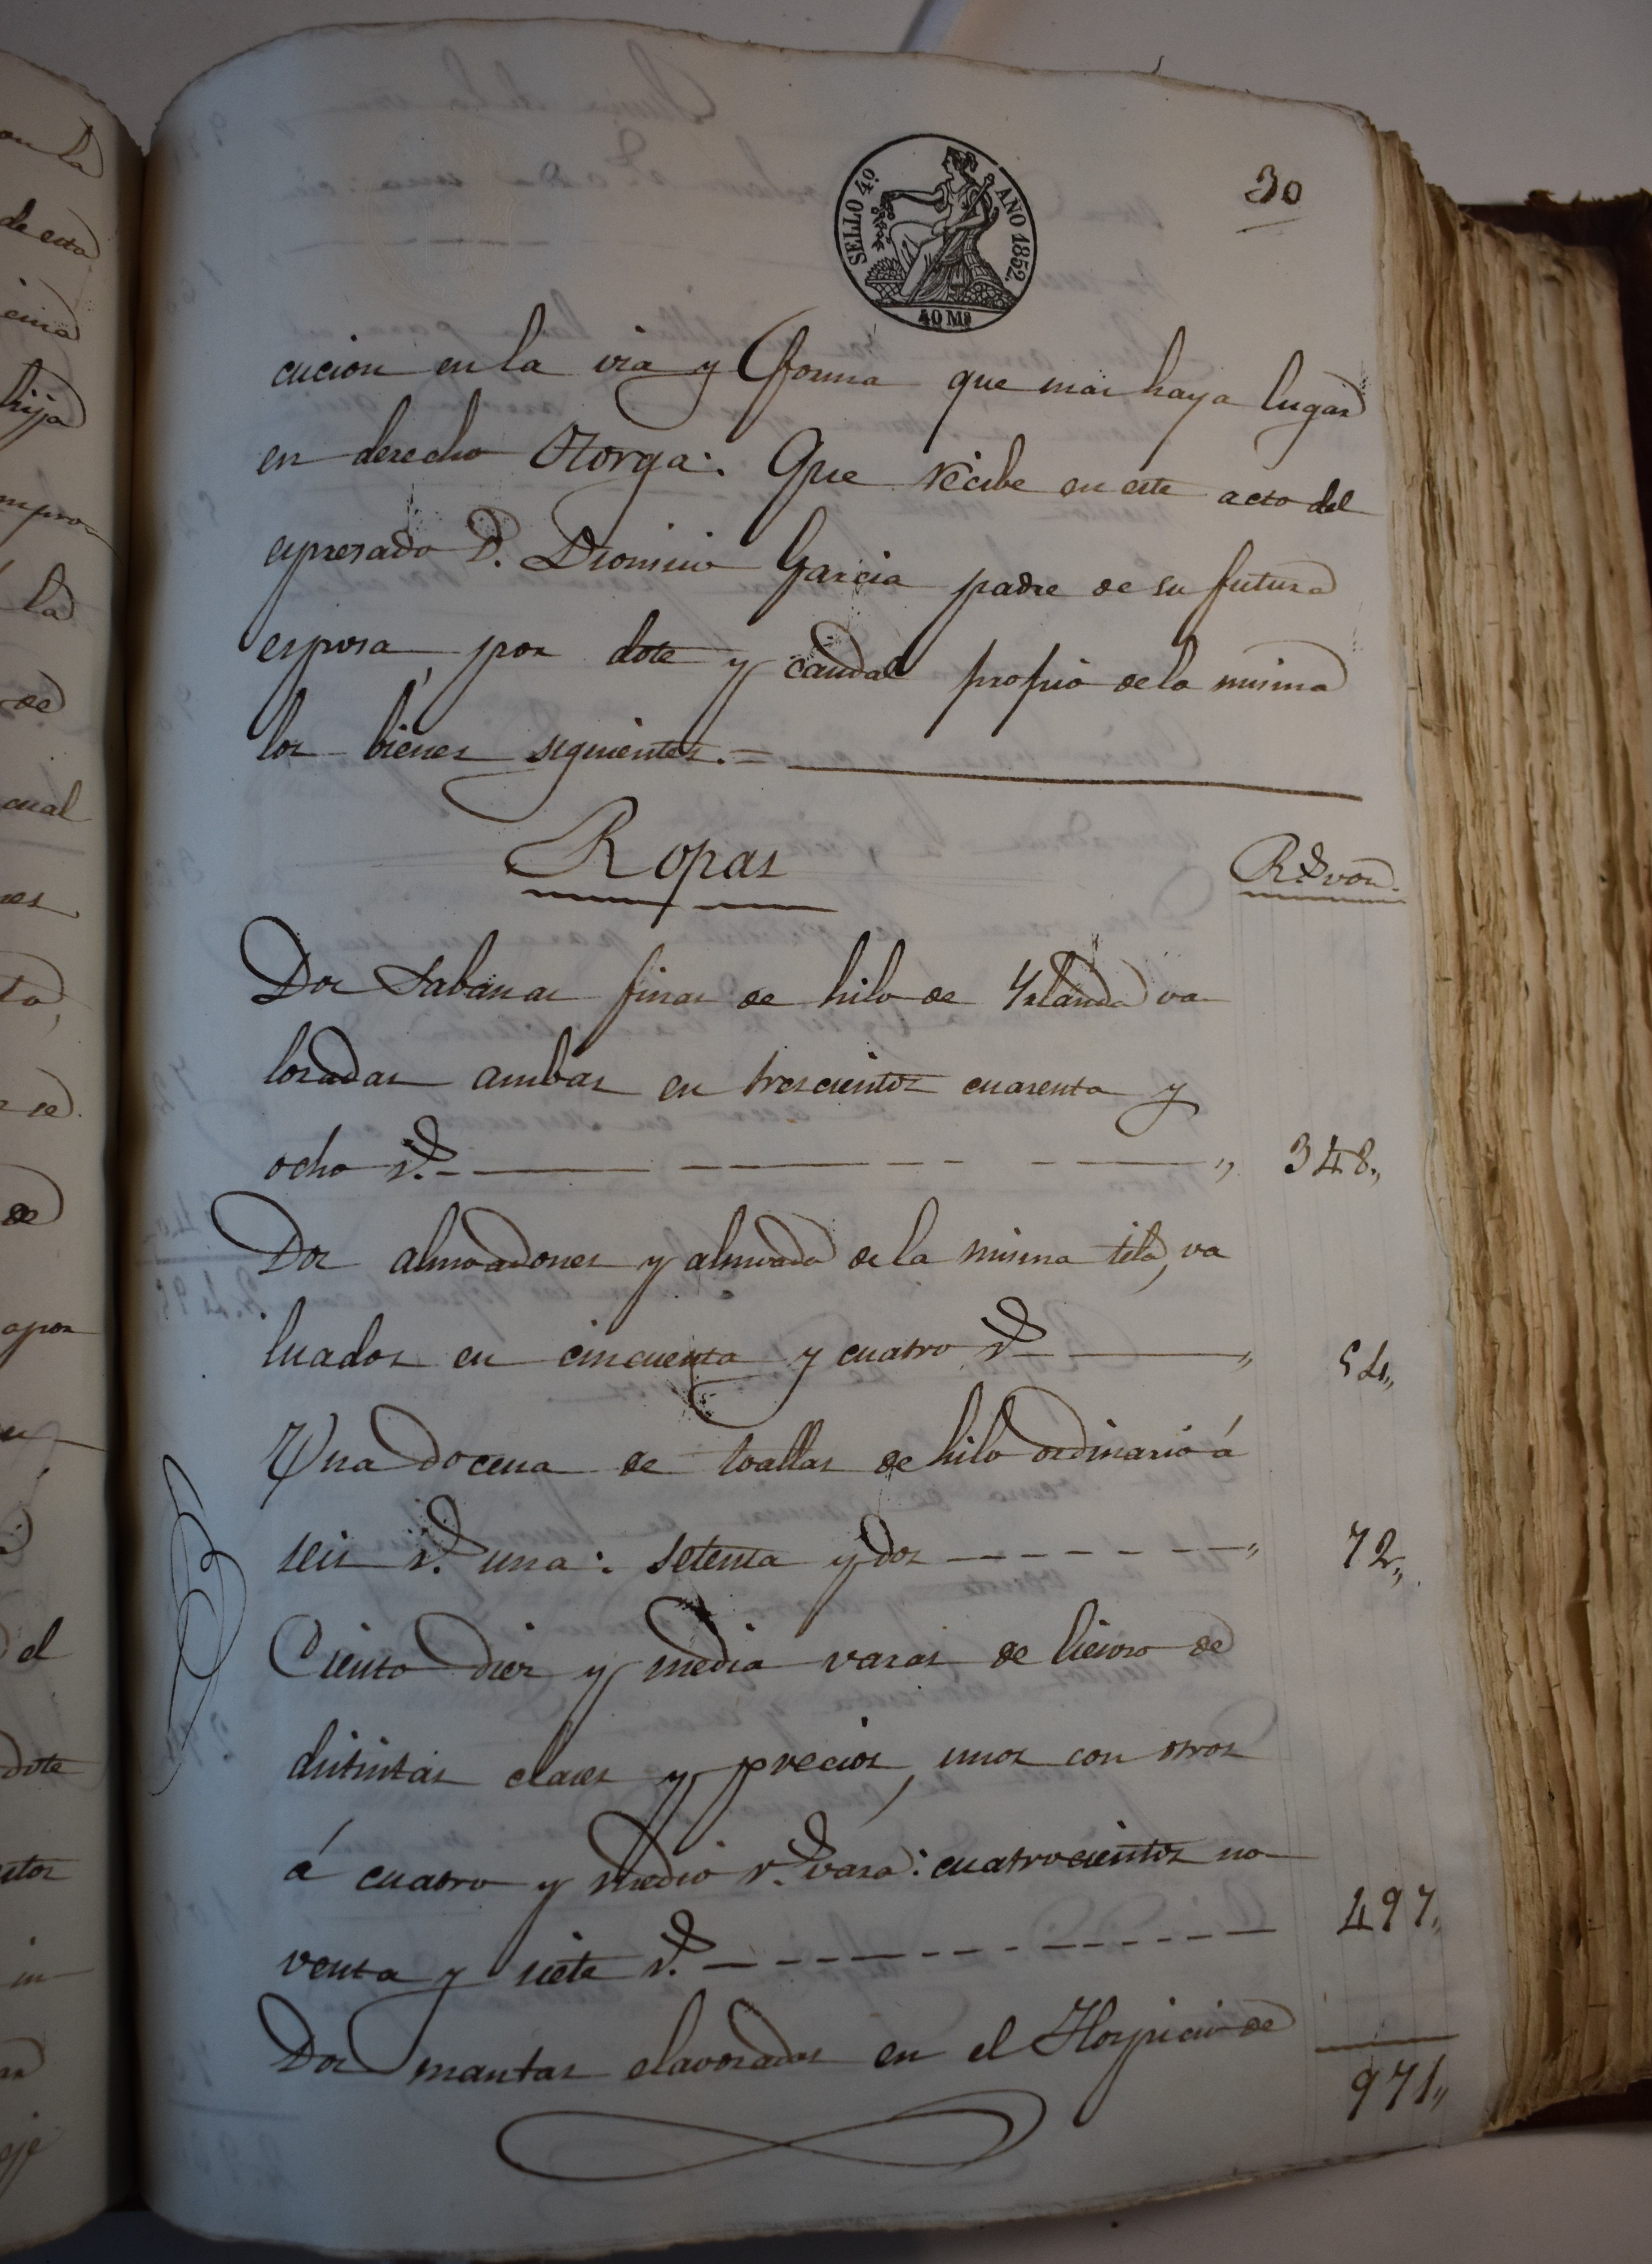 30
SELLO 4º. AÑO 1852.
40 Ms
cucion en la via y forma que mas haya lugar
en derecho Otorga: Que recibe en este acto del
espresado D. Dionisio Garcia padre de su futura
esposa, por dote y caudal propio de la misma
los bienes siguientes. =
Ropas
Rs von.
Dos sabanas finas de hilo de Yrlanda va
loradas ambas en trescientos cuarenta y
ocho rs. 348.,
Dos almoadones y almoada de la misma tela, va
luados en cincuenta y cuatro rs 54,,
Una docena de toallas de hilo ordinario á
seis rs. una: setenta y dos 72,,
Ciento diez y media varas de lienzo de
distintas clases y precios, unos con otros
á cuatro y medio rs. vara: cuatrocientos no
venta y siete rs. 497,,
Dos mantas elavoradas en el Hospicio de
971,,
on la
de esta
hija
la
de
cual
to,
se.
de
el
dote
in